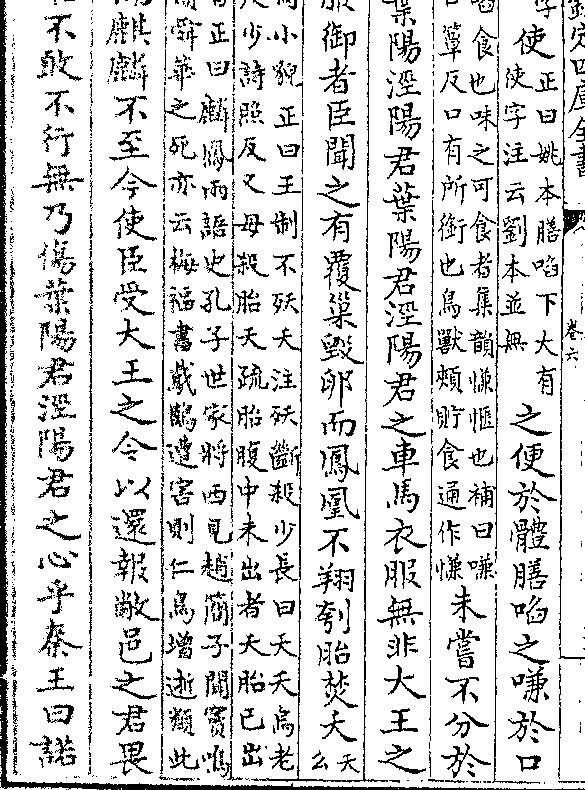 定四庫全書
卷六
使
正曰姚本膳啗下大有
使字注云劉本並無
之便於體膳啗之嗛於口
啗食也味之可食者集韻慊愜也補曰嗛
口簟反口有所銜也鳥獸頰貯食通作慊
未嘗不分於
葉陽涇陽君葉陽君涇陽君之車馬衣服無非大王之
服御者臣聞之有覆巢毀卵而鳳凰不翔刳胎焚夭
夭
么
小貌正曰王制不殀夭注殀斷殺少長曰夭夭烏老
少詩照反又毋殺胎夭疏胎腹中未出者夭胎已出
正曰麟鳳兩語史孔子世家將西見趙簡子聞竇鳴
舜華之死亦云梅福書戴鵲遭害則仁鳥增逝類此
麒麟不至今使臣受大王之令以還報敝邑之君畏
不敢不行無乃傷葉陽君涇陽君之心乎秦王曰諾